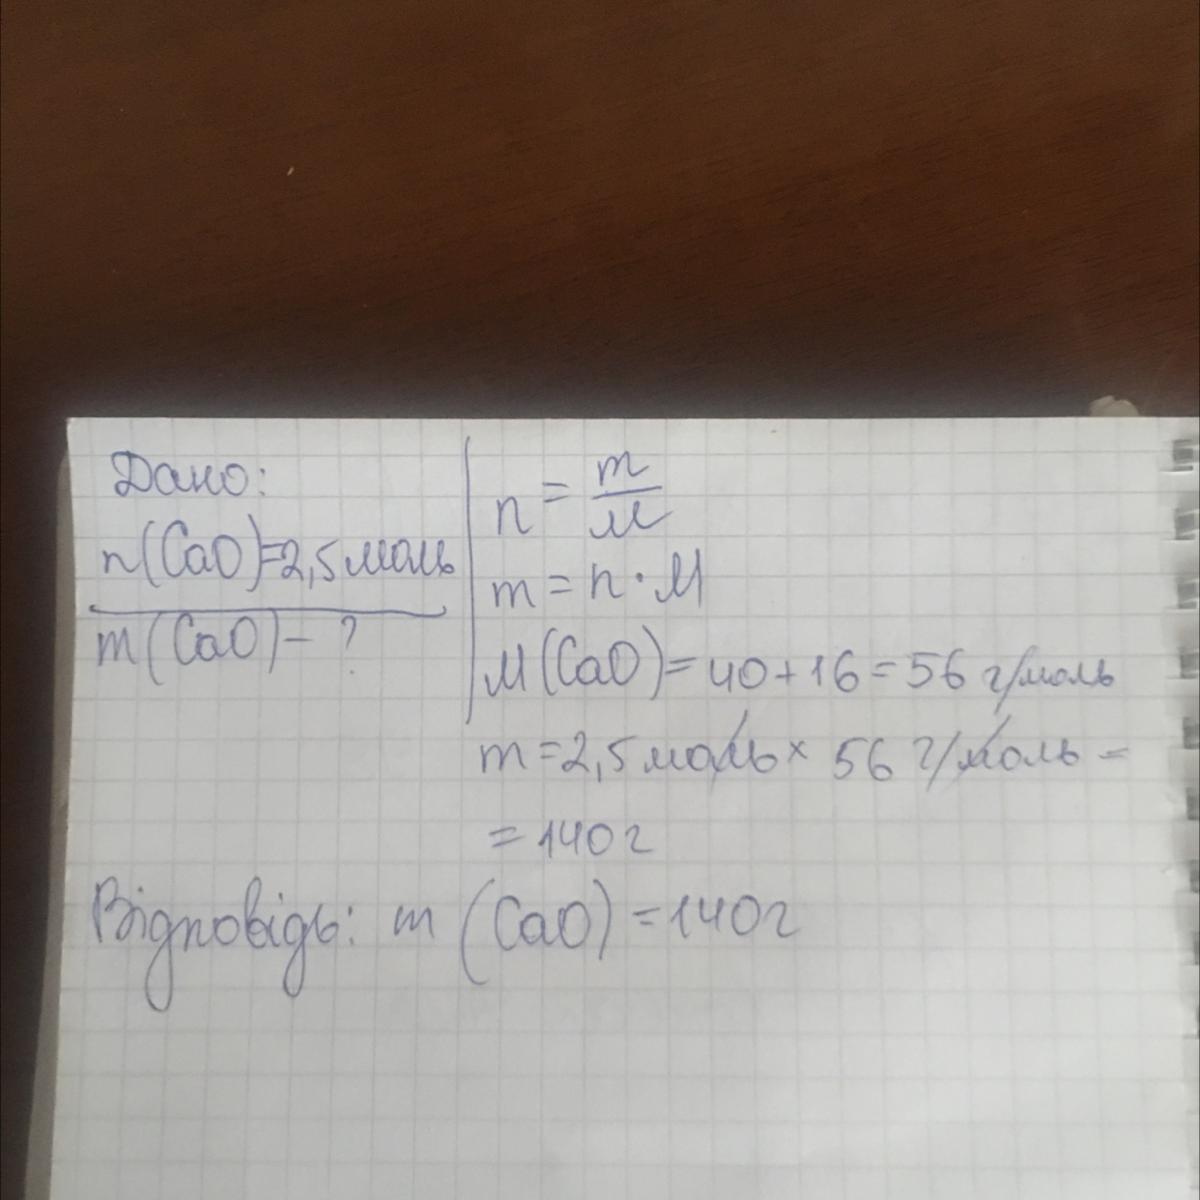 Дано:
n(CaO)=2,5 моль
m(CaO) - ?
n = m/M
m = n · M
M(CaO)=40+16=56 г/моль
m=2,5 моль × 56 г/моль =
= 140 г
Відповідь: m (CaO) = 140 г